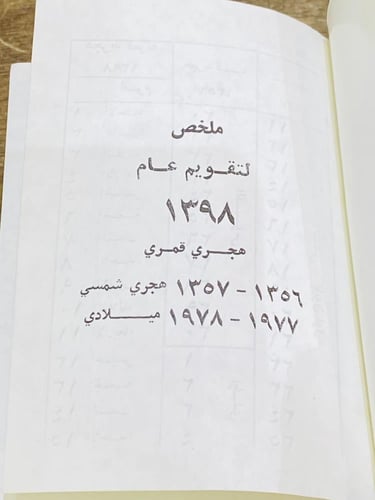 ملخص
لتقويم عام
١٣٩٨
هجري قمري
١٣٥٦ - ١٣٥٧ هجري شمسي
١٩٧٧ - ١٩٧٨ ميلادي